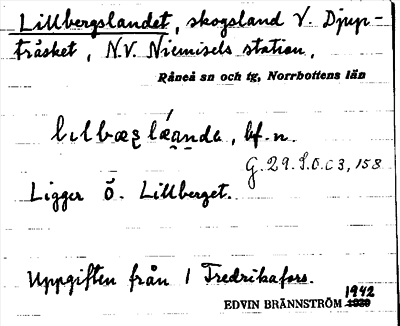 Lillbergslandet, skogsland V. Djup-
träsket, N.V. Niemisels station.
Råneå sn och tg, Norrbottens län
bf. n.
G. 29. S. O. C 3, 158
Ligger Ö. Lillberget.
Uppgiften från 1 Fredrikafors.
1942
EDVIN BRÄNNSTRÖM 1939